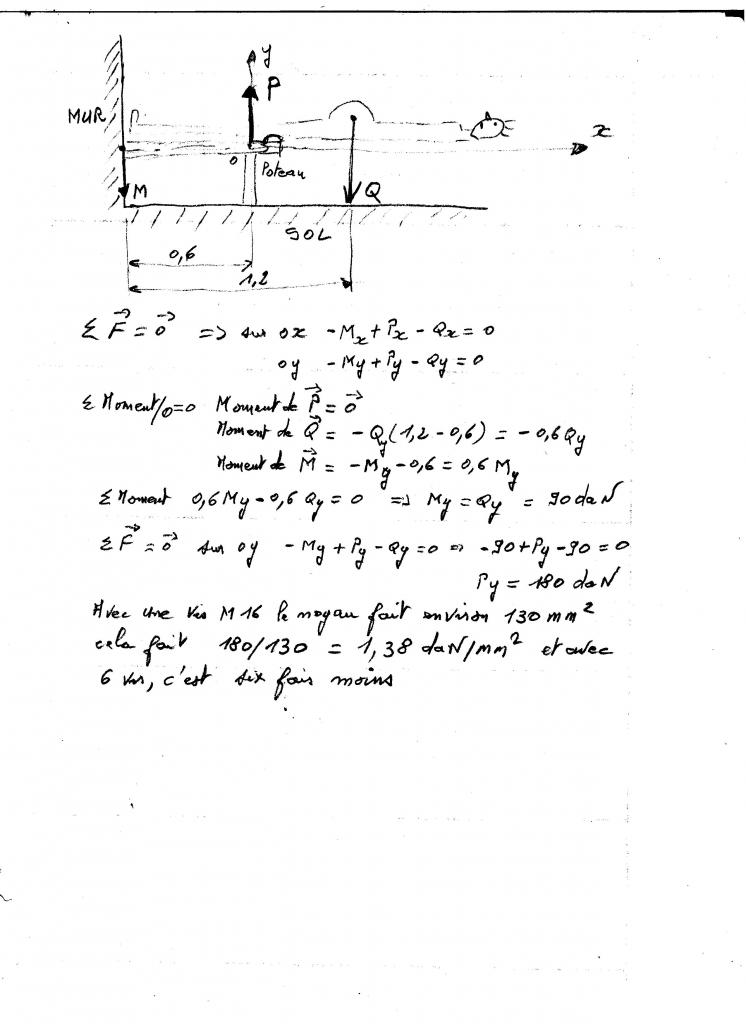 y
P
MUR
x
O
Poteau
M
Q
SOL
0,6
1,2
Σ F⃗ = 0⃗ => sur ox -Mx + Px - Qx = 0
oy - My + Py - Qy = 0
Σ Moment/o=0 Moment de P⃗ = 0⃗
Moment de Q⃗ = - Qy(1,2 - 0,6) = - 0,6 Qy
Moment de M⃗ = -My - 0,6 = 0,6 My
Σ Moment 0,6 My - 0,6 Qy = 0 => My = Qy = 90 daN
Σ F⃗ = 0⃗ sur oy - My + Py - Qy = 0 => -90 + Py - 90 = 0
Py = 180 daN
Avec une vis M16 le noyau fait environ 130 mm²
cela fait 180/130 = 1,38 daN/mm² et avec
6 vis, c'est six fois moins